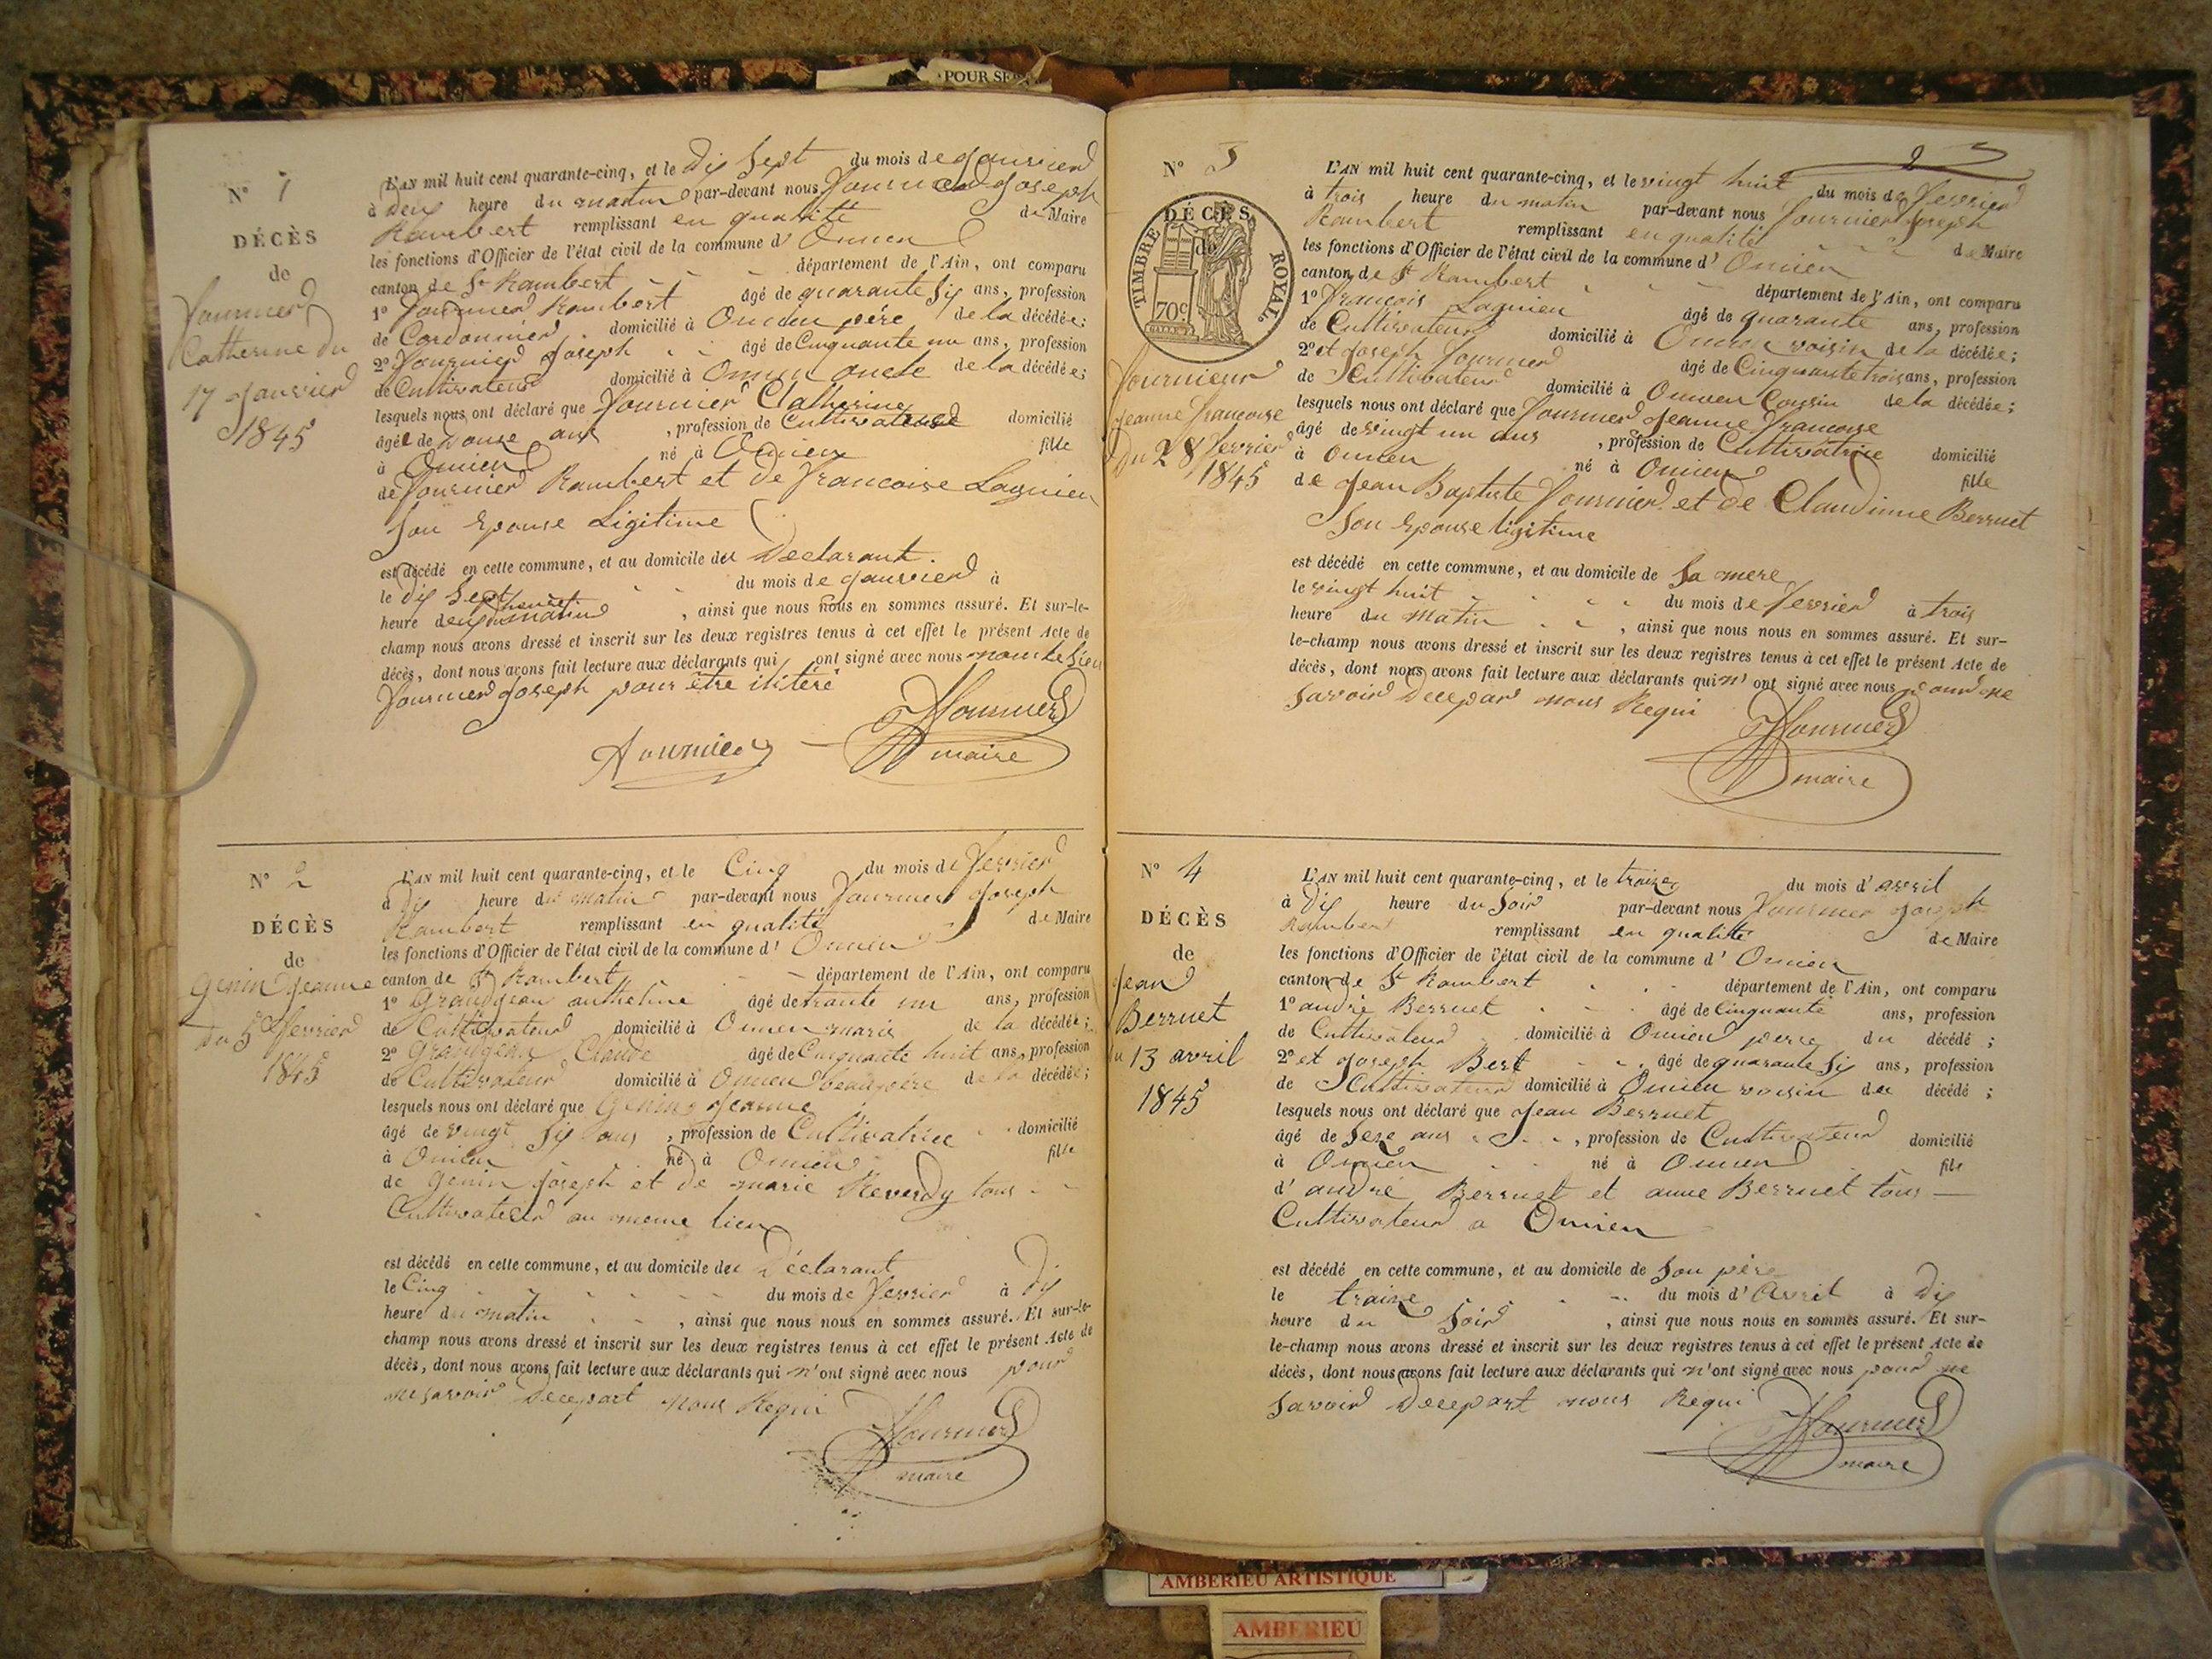 POUR SE
N° 1
DÉCÈS
de
Fournier
Catherine du
17 Janvier
1845
L'AN mil huit cent quarante-cinq, et le dix sept du mois de Janvier
à deux heure du matin par-devant nous Fournier Joseph
Rambert remplissant en qualité de Maire
les fonctions d'Officier de l'état civil de la commune d' Oncieu
canton de St Rambert département de l'Ain, ont comparu
1° Fournier Rambert âgé de quarante six ans, profession
de Cordonnier domicilié à Oncieu père de la décédée;
2° Fournier Joseph âgé de Cinquante un ans, profession
de Cultivateur domicilié à Oncieu oncle de la décédée;
lesquels nous ont déclaré que Fournier Catherine
âgée de douse ans, profession de Cultivateuse domicilié
à Oncieu né à Oncieu fille
de Fournier Rambert et de Francoise Lagnieu
Son Epouse Ligitime
est décédé en cette commune, et au domicile du Declarant.
le dix Sept du mois de Janvier à
heure deux heures du matin, ainsi que nous nous en sommes assuré. Et sur-le-
champ nous avons dressé et inscrit sur les deux registres tenus à cet effet le présent Acte de
décès, dont nous avons fait lecture aux déclarants qui ont signé avec nous non le Sieu
Fournier Joseph pour être ilitéré
Fournier
Fournier
maire
N° 2
DÉCÈS
de
Genin Jeanne
du 5 Fevrier
1845
L'AN mil huit cent quarante-cinq, et le Cinq du mois de Fevrier
à dix heure du matin par-devant nous Fournier Joseph
Rambert remplissant en qualité de Maire
les fonctions d'Officier de l'état civil de la commune d' Oncieu
canton de St Rambert département de l'Ain, ont comparu
1° Grandjean anthelme âgé de trante un ans, profession
de Cultivateur domicilié à Oncieu marie de la décédée;
2° Grandjean Claude âgé de Cinquante huit ans, profession
de Cultivateur domicilié à Oncieu beaupére de la décédée;
lesquels nous ont déclaré que Genin Jeanne
âgé de vingt Six ans, profession de Cultivatrice domicilié
à Oncieu né à Oncieu fille
de Genin Joseph et de marie Reverdy tous
Cultivateur au meme lieu
est décédé en cette commune, et au domicile du Déclarant
le Cinq du mois de Fevrier à dix
heure du matin, ainsi que nous nous en sommes assuré. Et sur-le-
champ nous avons dressé et inscrit sur les deux registres tenus à cet effet le présent Acte de
décès, dont nous avons fait lecture aux déclarants qui n'ont signé avec nous pour
ne savoir Decepart nous Requi
Fournier
maire
N° 3
DÉCÈS
de
TIMBRE ROYAL
70c
Fournieur
Jeanne Francoise
Du 28 Fevrier
1845
L'AN mil huit cent quarante-cinq, et le vingt huit du mois de Fevrier
à trois heure du matin par-devant nous Fournier Joseph
Rambert remplissant en qualité de Maire
les fonctions d'Officier de l'état civil de la commune d' Oncieu
canton de St Rambert département de l'Ain, ont comparu
1° François Lagnieu âgé de quarante ans, profession
de Cultivateur domicilié à Oncieu voisin de la décédée;
2° et Joseph Fournier âgé de Cinquante trois ans, profession
de Cultivateur domicilié à Oncieu Cousin de la décédée;
lesquels nous ont déclaré que Fournier Jeanne Francoise
âgé de vingt un ans, profession de Cultivatrice domicilié
à Oncieu né à Oncieu fille
de Jean Baptiste Fournier et de Claudinne Berruet
Son Epouse ligitime
est décédé en cette commune, et au domicile de Sa mere
le vingt huit du mois de Fevrier à trois
heure du matin, ainsi que nous nous en sommes assuré. Et sur-
le-champ nous avons dressé et inscrit sur les deux registres tenus à cet effet le présent Acte de
décès, dont nous avons fait lecture aux déclarants qui n' ont signé avec nous pour ne
savoir Decepar nous Requi
Fournier
maire
N° 4
DÉCÈS
de
Jean
Berruet
du 13 avril
1845
L'AN mil huit cent quarante-cinq, et le traize du mois d'avril
à dix heure du Soir par-devant nous Fournier Joseph
Rambert remplissant en qualité de Maire
les fonctions d'Officier de l'état civil de la commune d' Oncieu
canton de St Rambert département de l'Ain, ont comparu
1° andré Berruet âgé de Cinquante ans, profession
de Cultivateur domicilié à Oncieu perre du décédé;
2° et Joseph Bert âgé de quarante Six ans, profession
de Cultivateur domicilié à Oncieu voisin du décédé;
lesquels nous ont déclaré que Jean Berruet
âgé de Seze ans, profession de Cultivateur domicilié
à Oncieu né à Oncieu fils
d' andré Berruet et anne Berruet tous
Cultivateur a Oncieu
est décédé en cette commune, et au domicile de Son père
le traize du mois d'Avril à dix
heure du Soir, ainsi que nous nous en sommes assuré. Et sur-
le-champ nous avons dressé et inscrit sur les deux registres tenus à cet effet le présent Acte de
décès, dont nous avons fait lecture aux déclarants qui n'ont signé avec nous pour ne
Savoir Decepart nous Requi
Fournier
maire
AMBERIEU ARTISTIQUE
AMBERIEU